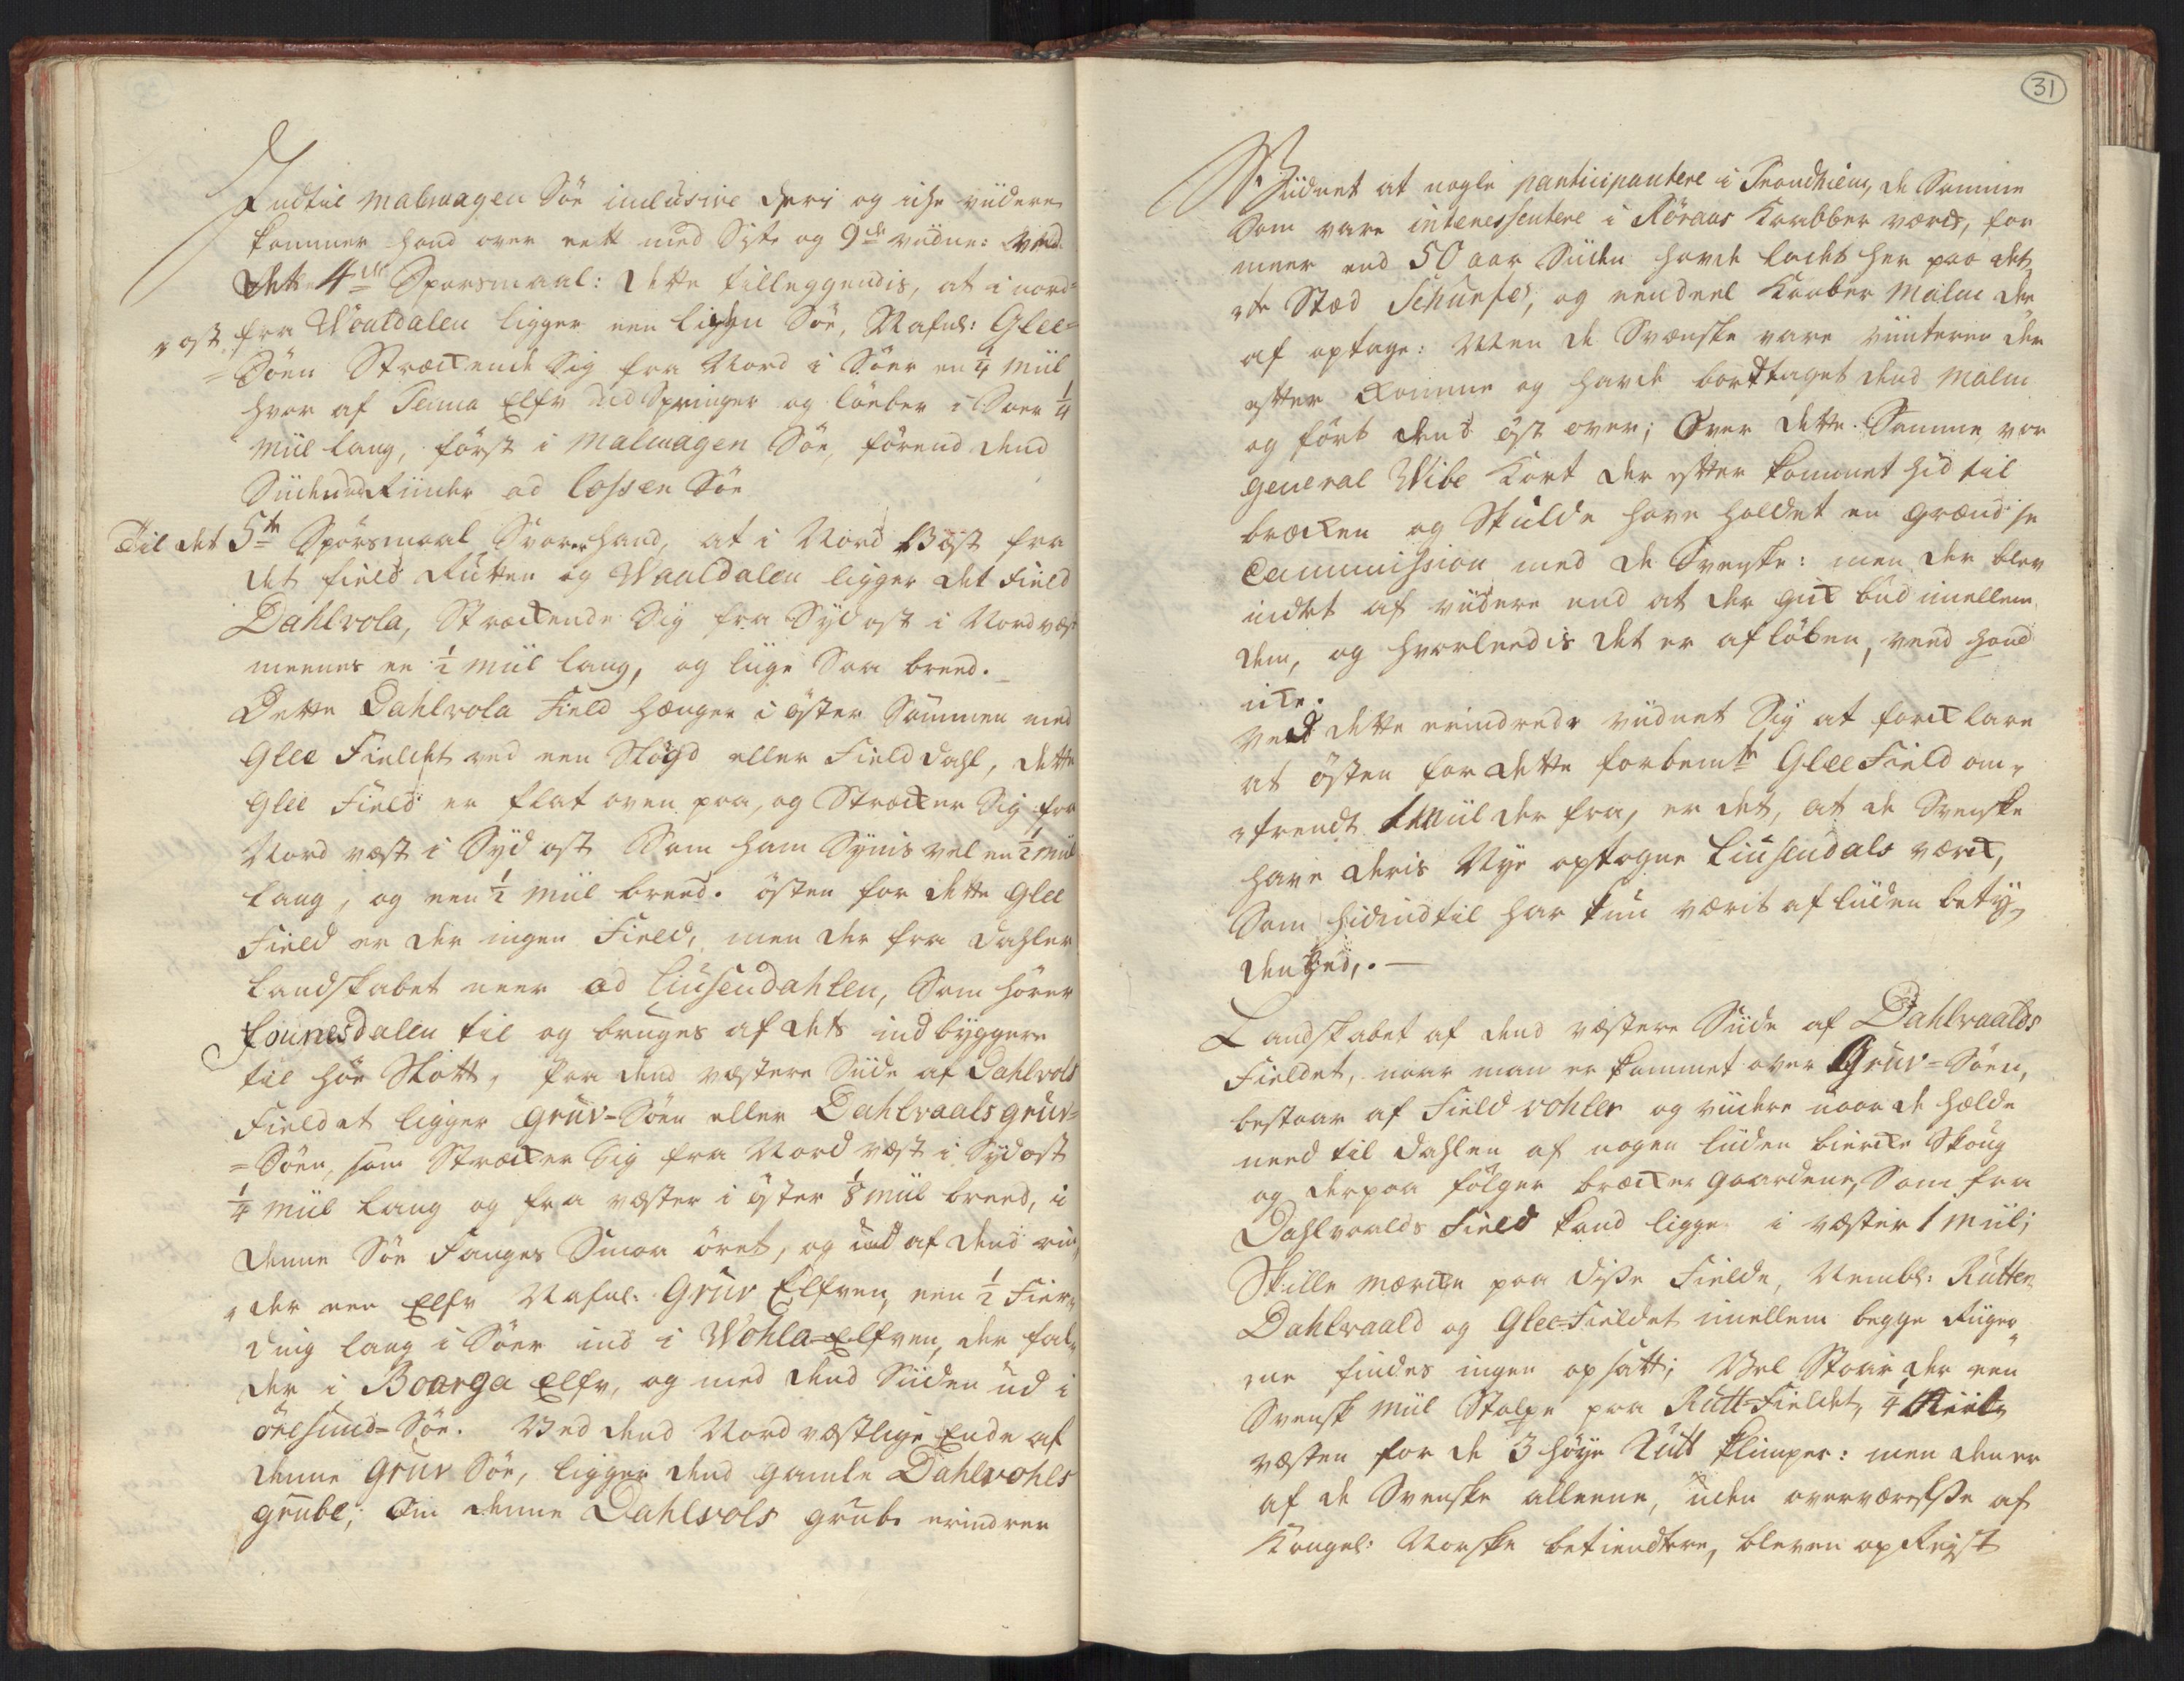 Indtil Malmagen Söe inclusive deri og iche videre
kommer hand over eett med 8de og 9de vidne: Ved
Dette 4de Sporsmaal: dette tilleggendis, at i nord-
ost fra Woaldalen ligger een liden Söe, Nafnl: Glee-
=Söen Streckende Sig fra Nord i Söer en 1/4 Miil
hvor af Tenna Elfv ud Springer og löeber i Söer 1/4
Miil lang, först i Malmagen Söe, förend dend
Siden ad Lossen Söe
Til det 5te Spörsmaal Svarer hand, at i Nord Ost fra
det field Rutten og Waaldalen ligger det Field
Dahlvola, Streckende Sig fra Syd ost i Nord væst
meenes en 1/2 Miil lang, og liige Saa breed.
Dette Dahlvola Field henger i öster Sammen med
Glee Fieldet ved een Slögd eller Field dahl, dette
Glee Field er flat oven paa, og Strecker Sig fra
Nord væst i Syd ost Som ham Synis vel en 1/2 Miil
lang, og een 1/2 Miil breed. östen for dette Glee
Field er der ingen Field, men der fra dahler
Landskabet neer ad Liusendahlen, Som hörer
Founesdalen til og bruges af dets ind byggere
til höe Slott, paa dend vestere Side af Dahlvols
Fieldet ligger Gruv-Söen eller Dahlvaals gruv-
=Söen, som Strecker Sig fra Nord væst i Syd ost
1/4 Miil lang og fra væster i öster 1/8 Miil breed, i
denne Söe Fanges Smaa öret, og ud af dend rin-
der een Elfv Nafnl: Gruv Elfven, een 1/2 Fier-
ding lang i Söer ind i Wohla-Elfven, der fal-
der i Boarga Elfv, og med dend Siden ud i
öresund-Söe. Ved dend Nord væstlige Ende af
denne Gruv Söe, ligger dend gamle Dahlvohls
grube; Om denne Dahlvols grube erindrer
31
Vidnet at nogle participantere i Trondhiem, de Samme
Som vare interessentere i Röraas Kaabber værck, for
meer end 50 aar Siden havde ladet her paa det-
te Stæd Schurfe, og eendeel Kaaber Malm der
af optage: Men de Svenske vare vinteren der
efter komme og havde bordttaget dend Malm
og fört dend öst over; Over dette Samme var
General Wibe Kort der efter kommet hid til
brecken og Skulde have holdet en Grændse
Commission med de Svenske: men der blev
indtet af videre end at der gick bud imellem
dem, og hvorleedis det er aflöben, veed hand
icke.
Ved dette erindrede vidnet Sig at forcklare
at östen for dette forbemte Glee Field om-
trendt 1 Miil der fra, er det, at de Svenske
have deris Nye optagne Liusendals værck,
Som hidindtil har kun værit af liden bety-
denhed.
Landskabet af dend væstere Side af Dahlvaalds
Fieldet, naar man er kommet over Gruv-Söen,
bestaar af Field vohler og videre naar de helde
need til dahlen af nogen liden biercke Skoug
og derpaa fölger brecker Gaardene, Som fra
Dahlvaalds Field kand ligge i væster 1 Miil;
Skille mercke paa disse Fielde, Nembl: Rutten
Dahlvaald og Glee-Fieldet imellem begge Riiger-
ne findes ingen opsatt; Vel Staar der een
Svensk Miil Stolpe paa Rutt-Fieldet, 1/4 Miil
væsten for de 3 höye Rutt klimper: men den er
af de Svenske alleene, uden overværelse af
Kongel: Norske betiendtere, bleven op Reyst